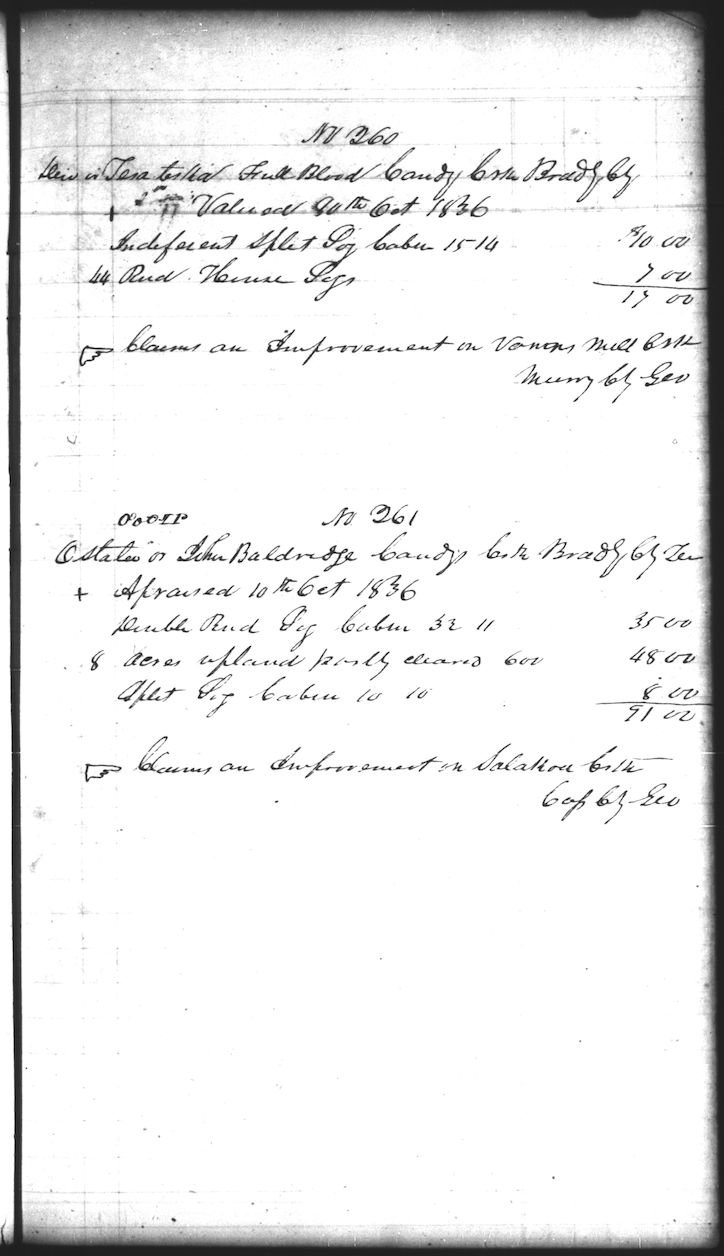 No 260
or Full Blood Candy Crk Bradly Cty
+ Valued 10th Oct 1836
Indeferent Split Log Cabin 15 14 $10 00
44 Rud House Logs 7 00
17 00
☞ Claims an Improvement on Vanns Mill Crk
Murry Cty Geo
No 261
Ostatee or John Baldredge Candys Crk Bradly Cty Ten
+ Apraised 10th Oct 1836
Duble Rud Log Cabin 32 11 35 00
8 Acres upland partly cleard 600 48 00
Split Log Cabin 10 10 8 00
91 00
☞ Claims an Improvement on Crk
Cass Cty Geo